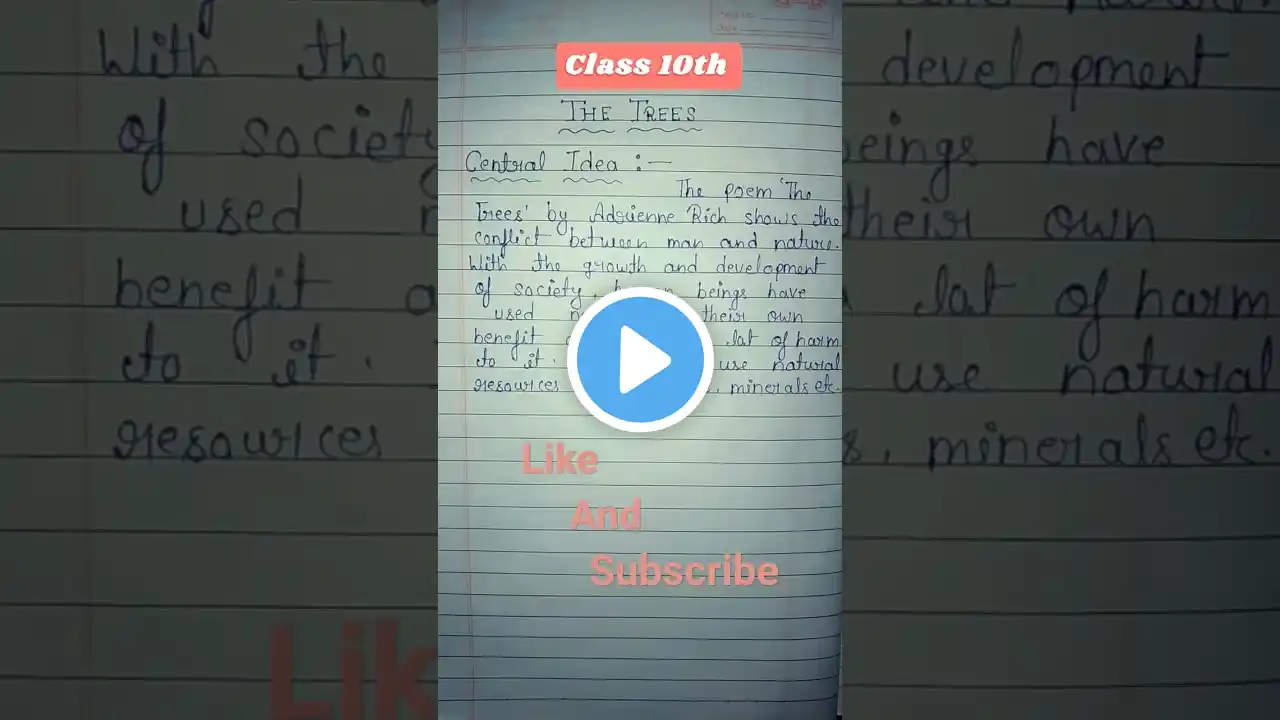 Class 10th
THE TREES
Central Idea :—
The poem 'The
Trees' by Adrienne Rich shows the
conflict between man and nature.
With the growth and development
of society, beings have
used their own
benefit lat of harm
to it. use natural
resources , minerals etc.
Like
And
Subscribe
With the development
of society beings have
used their own
benefit lat of harm
to it. use natural
resources , minerals etc.